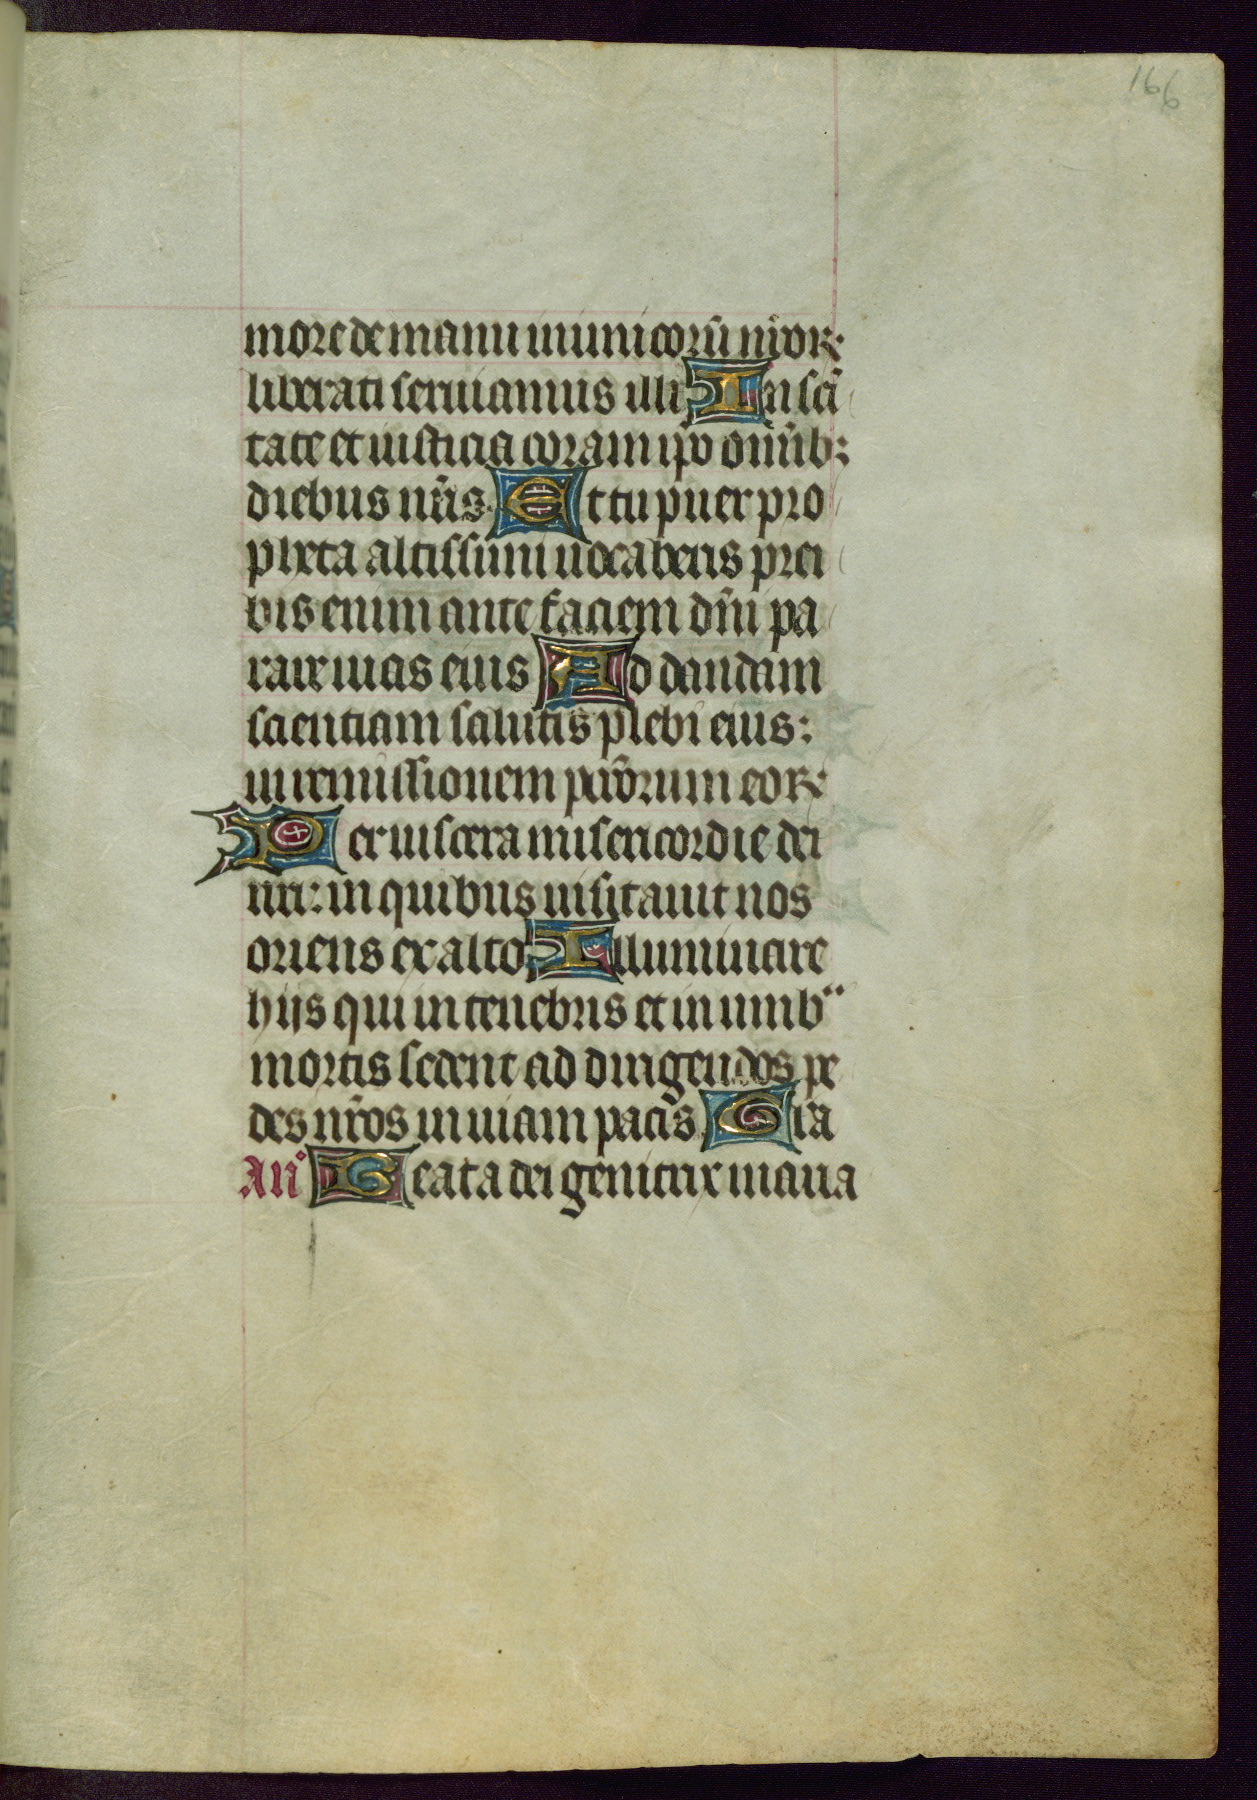 166
more de manu inimicorū nr̄oꝝ
liberati seruiamus illi In sc̄i
tate et iusticia coram ip̄o omīb;
diebus nr̄is. Et tu puer pro
pheta altissimi uocaberis prei
bis enim ante faciem dn̄i pa
rare uias eius Ad dandam
scientiam salutis plebi eius:
in remissionem pctōrum eoꝝ
Per uiscera misericordie dei
nr̄i: in quibus uisitauit nos
oriens ex alto Illuminare
hijs qui in tenebris et in umb
mortis sedent ad dirigendos pe
des nr̄os in uiam pacis Glā
An̄ Beata dei genitrix maria